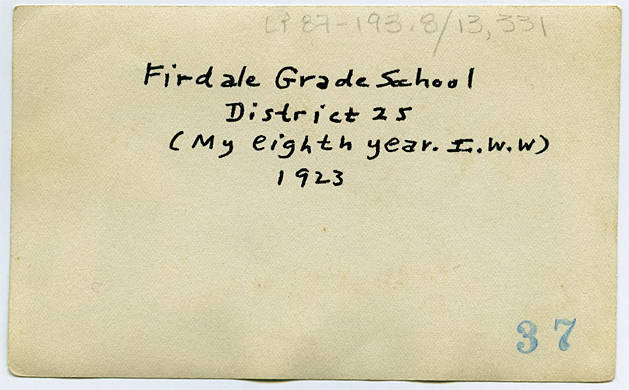 LP 87-193.8/13,331
Firdale Grade School
District 25
(My eighth year. I.W.W)
1923
37